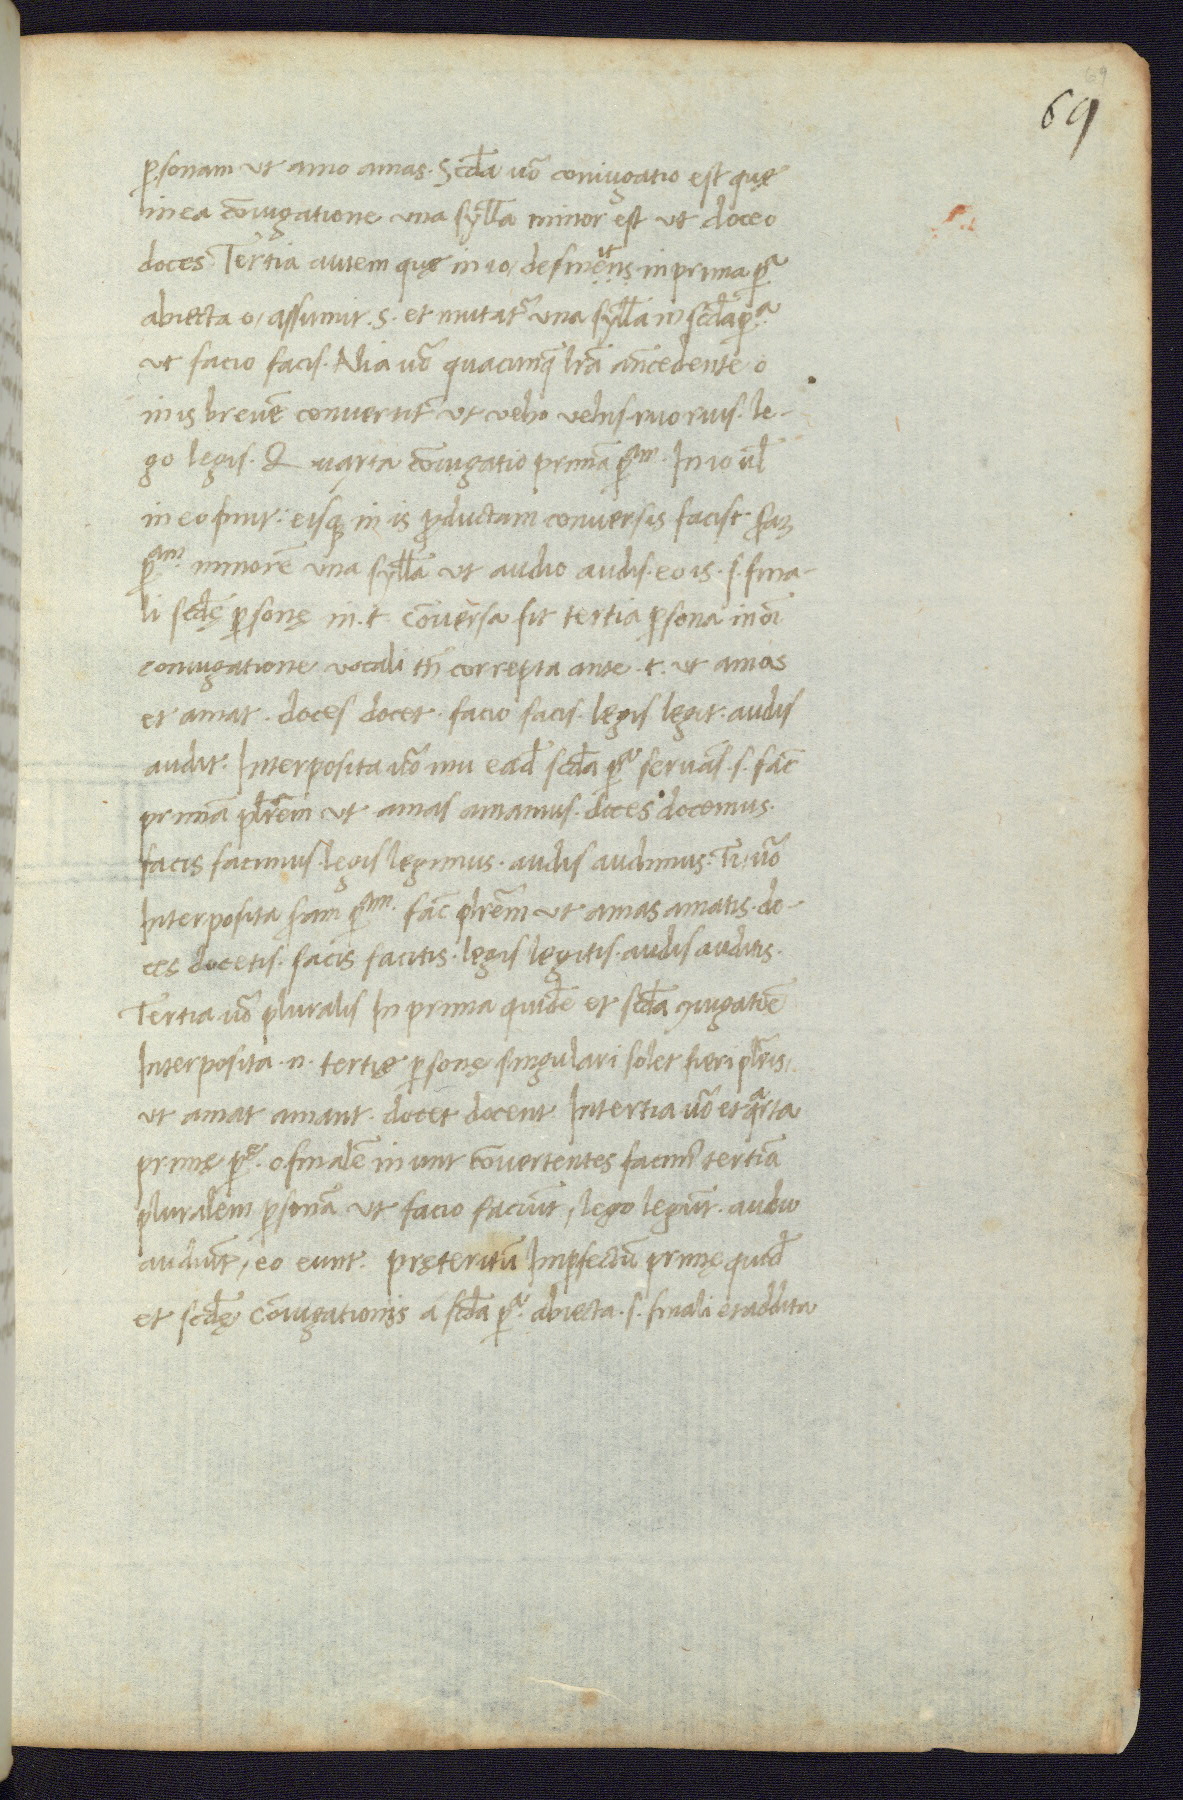 69
69
p̲sonam ut amo amas. Scd̄a uō coniugatio est quę
in ea cōiugatione una syll̄a minor est ut doceo
doces. Tertia autem quę in io, desinēns in prima p̲ᵃ
abiecta o, assumit .s. et mutat᷑ una syll̄a in scd̄a p̲ᵃ.
ut facio facis. Alia uō quacunq̨ lr̄a an̄cedente o
in is breuē conuertit᷑ ut ueho uehis. ruo ruis. le-
go legis. Quarta cōiugatio primā p̲ᵃᵐ. In io ul̄
in eo finit: eisq̨ in is p̱ductam conuersis facit
p̲ᵃᵐ. minorē una syll̄a ut audio audis. eo is. s. fina-
li scd̄ę p̲sonę in .t. cōuersa fit tertia p̲sona in oī
coniugatione uocali tn̄ correpta ante .t. ut amas
et amat. doces docet. facio facis. legis legit. audis
audit. Interposita uō mu eād scd̄a p̲ᵃ. seruās .s. fac̄
primā plr̄em ut amas amamus. doces docemus.
facis facimus. legis legimus. audis audimus. Ti, uō
Interposita scd̄am p̲ᵃᵐ. fac̄ plr̄em ut amas amatis. do-
ces docetis. facis facitis. legis legitis. audis auditis.
Tertia uō pluralis In prima quidē et scd̄a ꝯiugatiōe
Interposita .n. tertię p̲sonę singulari solet fieri plr̄is,
ut amat amant. docet docent. In tertia uō et qᵃrta
primę p̲ᵉ. o finalē in unt cōuertentes faciūt tertiā
pluralem p̲sonā ut facio faciūt, lego legūt. audio
audiūt, eo eunt. pręteritū Imp̲fectū primę quid̄
et scd̄ę cōiugationis a scd̄a p̲ᵃ. abiecta .s. finali et addita